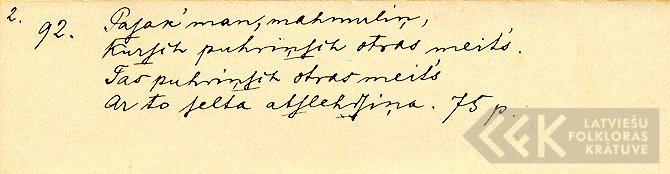 2. 92. Paſak' man, mahmuliņ,
Kurſch puhriņſch otras meit's.
Tas puhriņſch otras meit's
Ar to ſelta atſlehdſiņa. 75 p.
LATVIEŠU
FOLKLORAS
KRĀTUVE